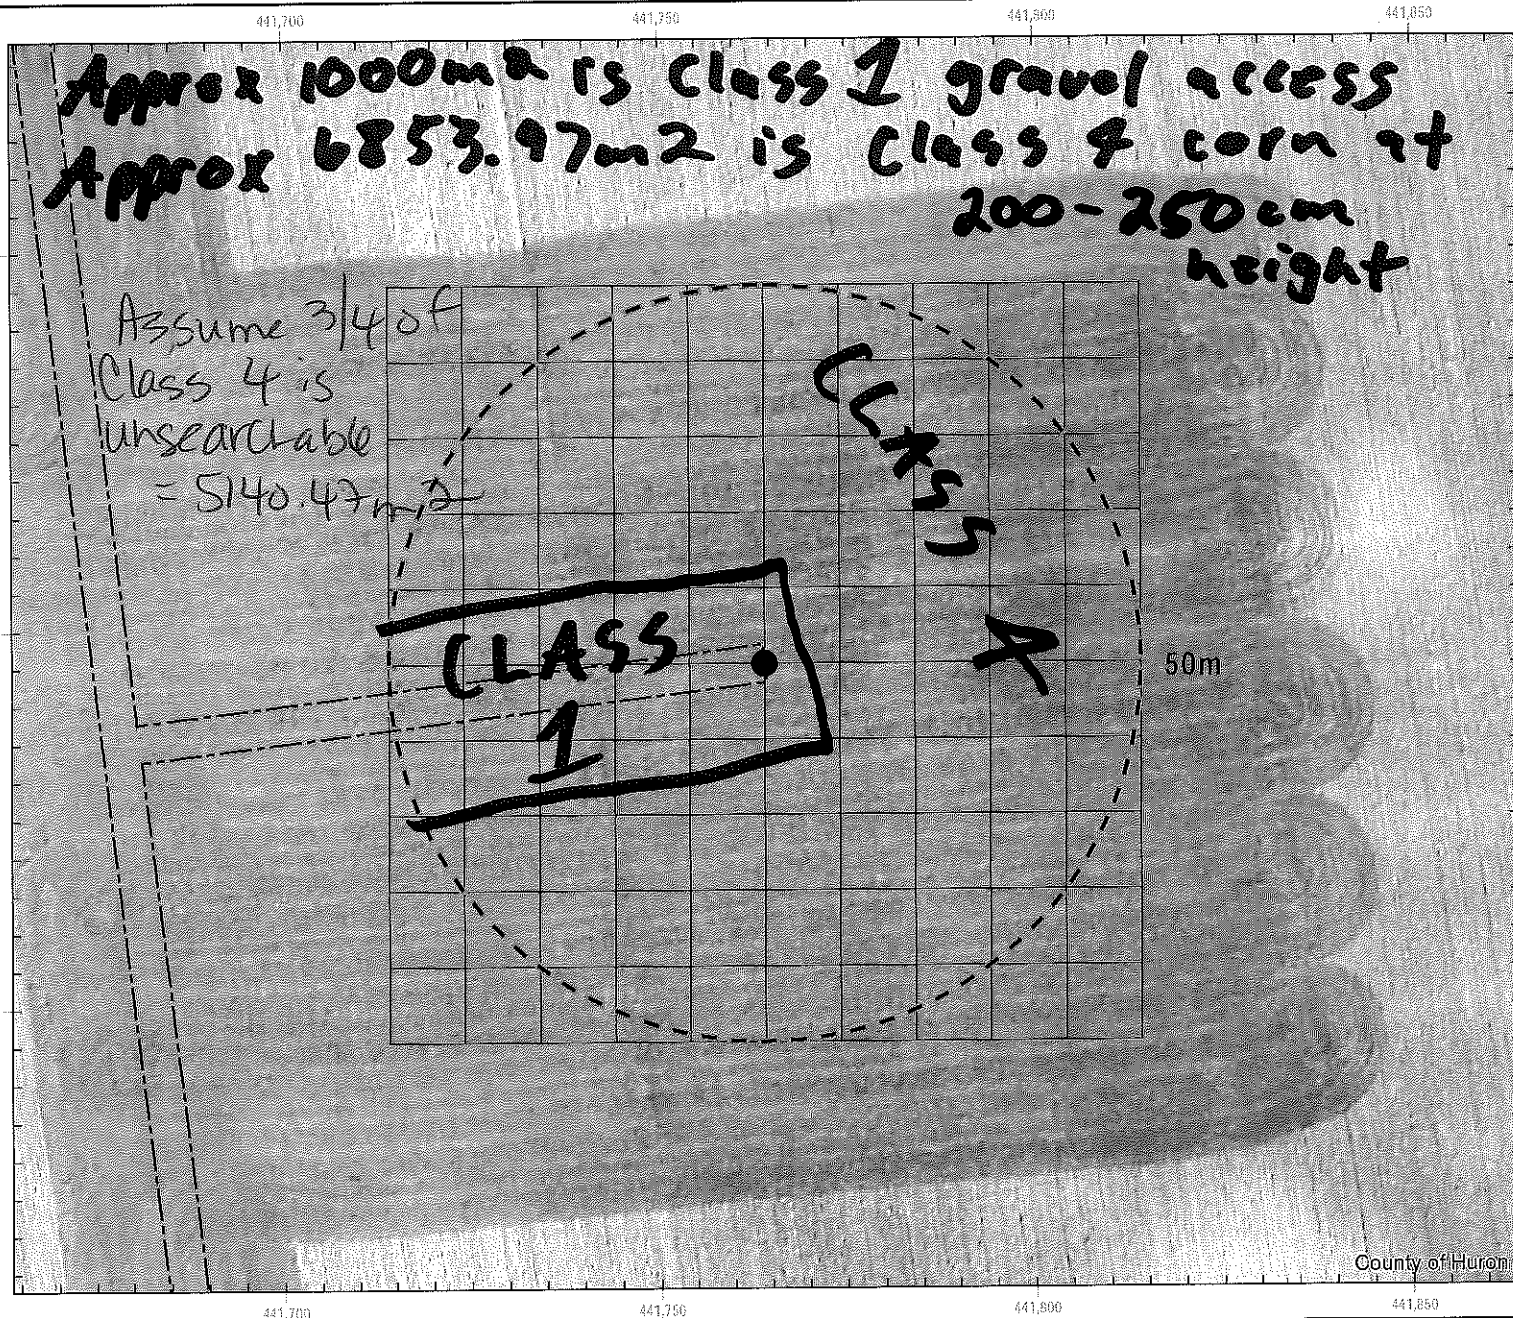 441,700 441,750 441,800 441,850
Approx 1000m2 is Class 1 gravel access
Approx 6853.97m2 is Class 4 corn at
200-250cm
height
Assume 3/4 of
Class 4 is
unsearchable
= 5140.47m2
CLASS
4
CLASS
1
50m
County of Huron
441,700 441,750 441,800 441,850